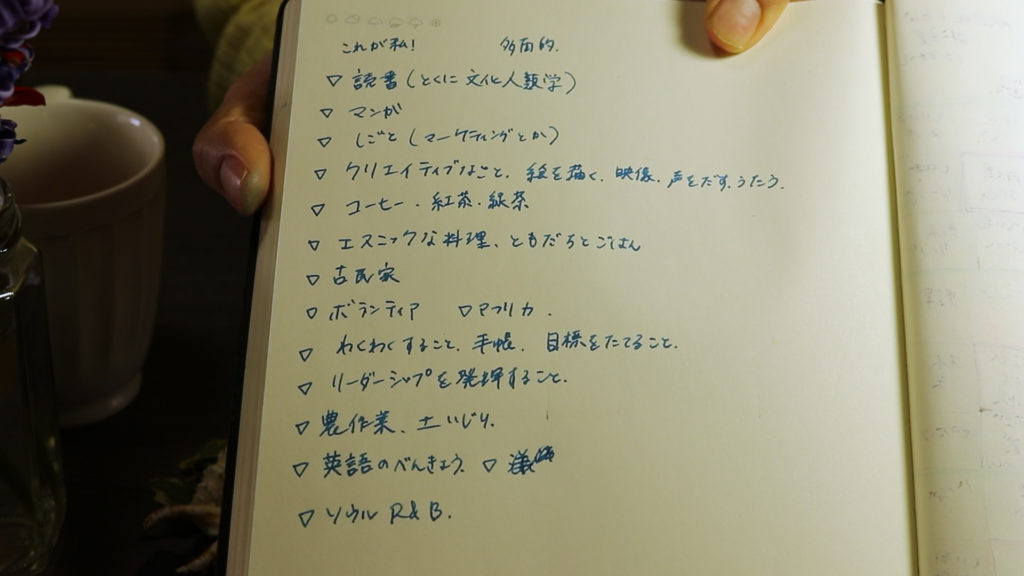 これが私! 多面的.
▽ 読書(とくに文化人類学)
▽ マンガ
▽ しごと(マーケティングとか)
▽ クリエイティブなこと、絵を描く、映像、声をだす、うたう.
▽ コーヒー・紅茶・緑茶
▽ エスニックな料理、ともだちとごはん
▽ 古民家
▽ ボランティア ▽ アフリカ.
▽ わくわくすること、手帳、目標をたてること.
▽ リーダーシップを発揮すること.
▽ 農作業、土いじり.
▽ 英語のべんきょう. ▽
▽ ソウル R&B.